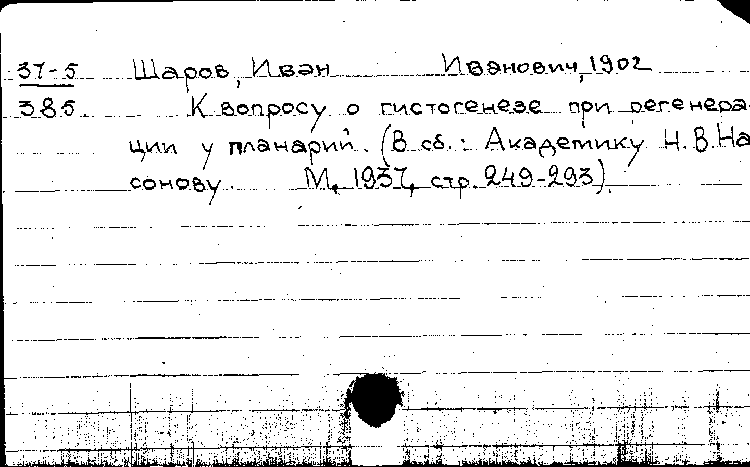 37-5 Шаров, Иван Иванович, 1902
385. К вопросу о гистогенезе при регенера-
ции у планарий. (В сб.: Академику Н.В.На
сонову. М., 1937, стр. 249-293).